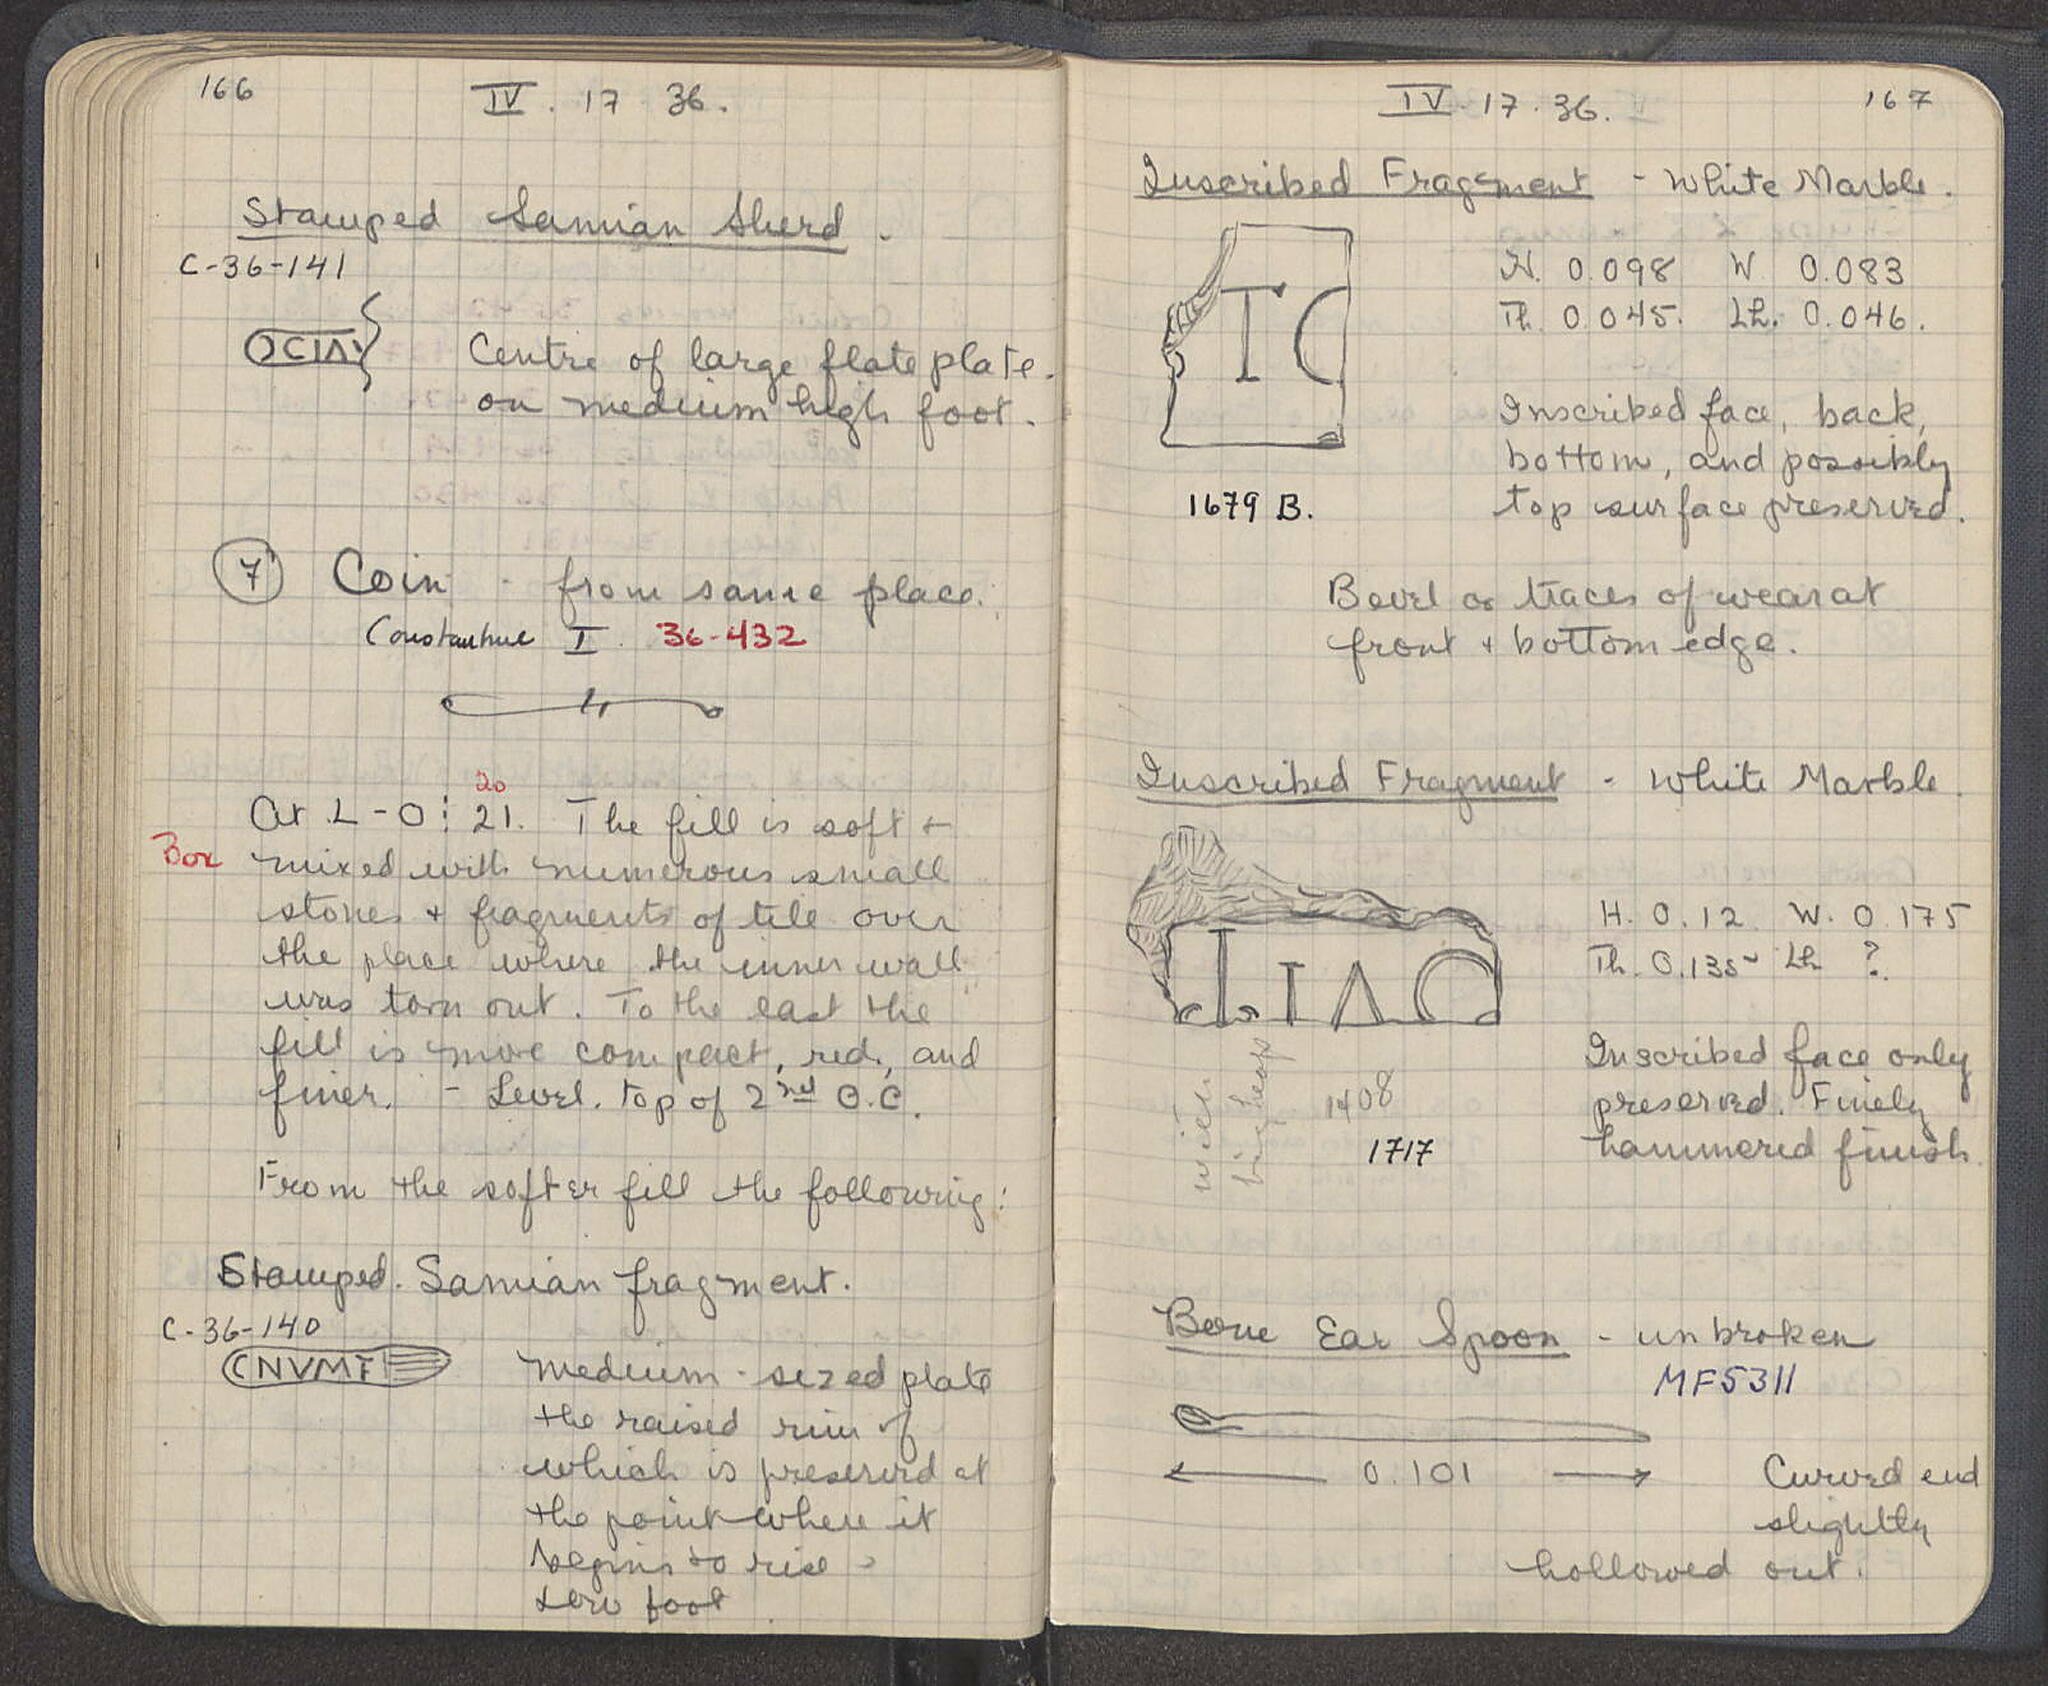 166
IV. 17 36.
Stamped Samian Sherd.
C-36-141
OCIA
Centre of large flate plate.
on medium high foot.
7 Coin - from same place.
Constantine I. 36-432
20
At L-O: 21. The fill is soft +
Box mixed with numerous small
stones + fragments of tile over
the place where the inner wall
was torn out. To the east the
fill is more compact, red, and
finer. - Level. top of 2nd O.C.
From the softer fill the following:
Stamped. Samian fragment.
C-36-140
CNVMF
Medium-sized plate
the raised rim of
which is preserved at
the point where it
begins to rise
Low foot
IV. 17. 36.
167
Inscribed Fragment - White Marble.
H. 0.098 W 0.083
Th. 0.045. Lh. 0.046.
TC
Inscribed face, back,
bottom, and possibly
top surface preserved.
1679 B.
Bevel or traces of wear at
front + bottom edge.
Inscribed Fragment - White Marble.
H. 0.12 W. 0.175
Th. 0.135 Lh ?.
LIAO
Inscribed face only
preserved. Finely
hammered finish.
with
big heap
1408
1717
Bone Ear Spoon - unbroken
MF5311
0.101
Curved end
slightly
hollowed out.